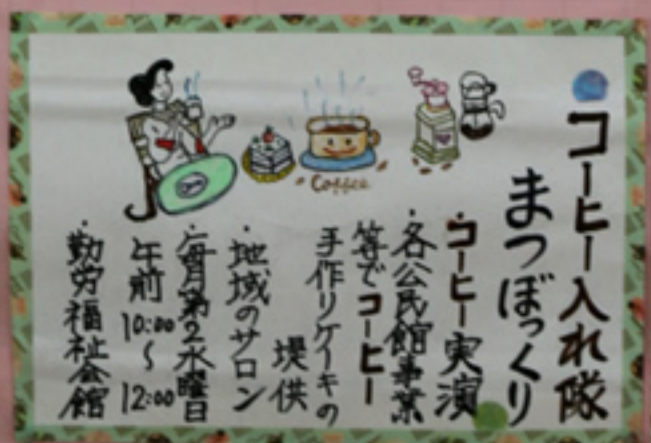 コーヒー入れ隊
まつぼっくり
・コーヒー実演
・各公民館事業
等でコーヒー
手作りケーキの
堤供
・地域のサロン
・毎月第2水曜日
午前10:00～12:00
・勤労福祉会館
Coffee